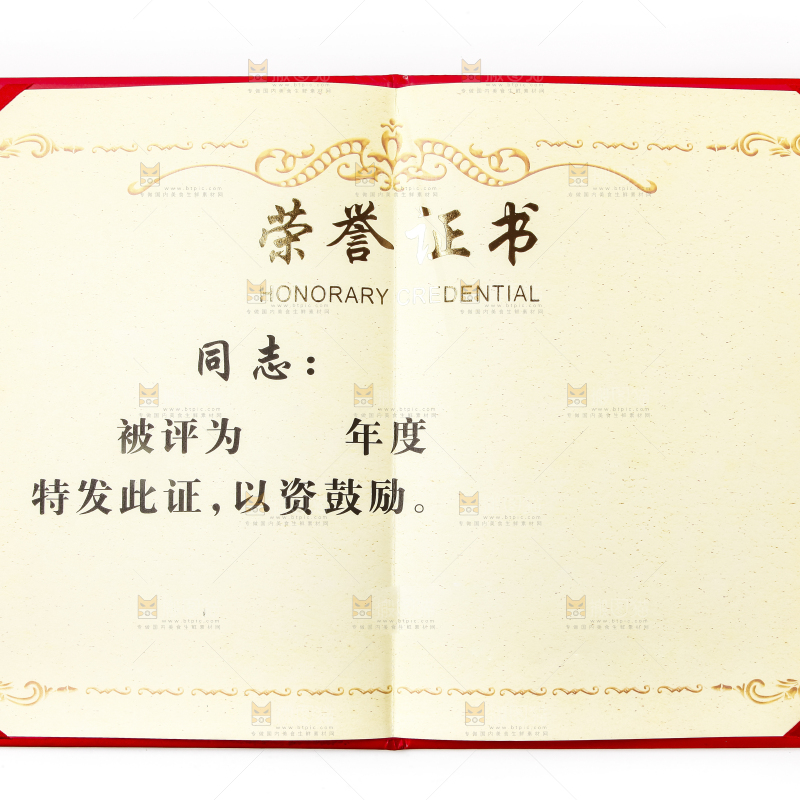 荣誉证书
HONORARY CREDENTIAL
同志：
被评为 年度
特发此证，以资鼓励。
www.btpic.com